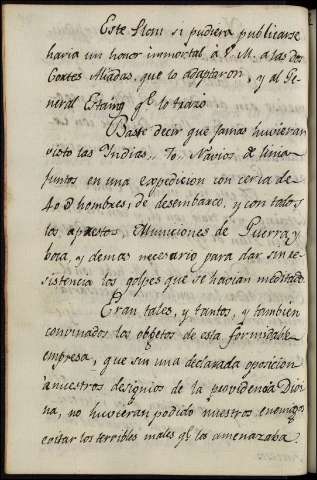 Este Plan si pudiera publicarse
haria un honor immortal á V. M. a las dos
Cortes Aliadas, que lo adaptaron, y al Ge
neral Estaing qe. lo trazo
Baste decir que jamas huvieran
visto las Indias, 70, Navios de linia
juntos en una expedicion con cerca de
40 D hombres, de desembarco, y con todos
los aprestos, Municiones de Guerra y
boca, y demas necesario para dar sin re
sistencia los golpes que se havian meditado
Eran tales, y tantos, y tambien
convinados los obgetos de esta formidable
empresa, que sin una declarada oposicion
a nuestros designios de la providencia Divi
na, no huvieran podido nuestros enemigos
evitar los terribles males qe. los amenazaba